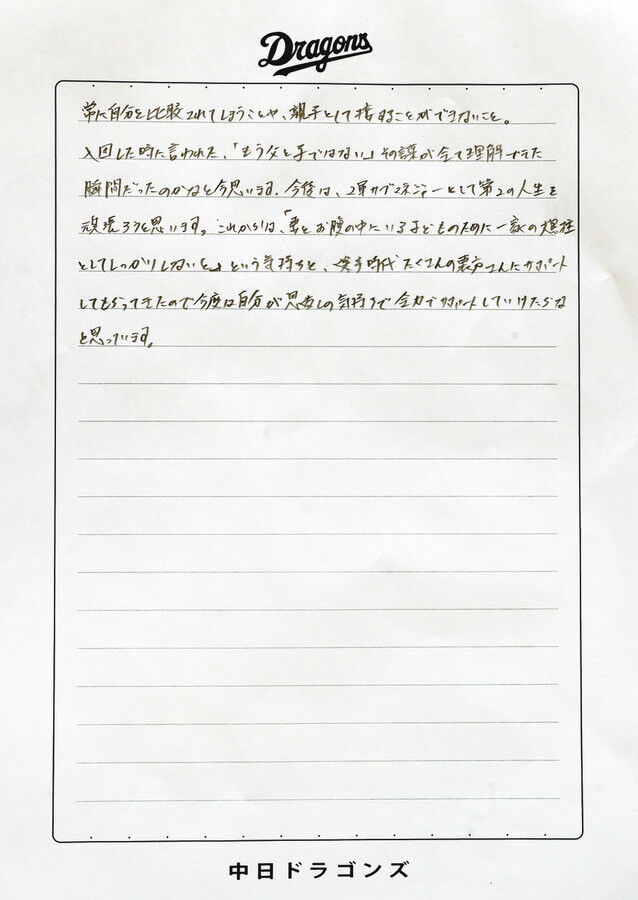 Dragons
常に自分と比較されてしまうことや、親子として接することができないこと。
入団した時に言われた、「もう父と子ではない」その謎が全て理解できた
瞬間だったのかなと今思います。今後は、2軍サブマネジャーとして第2の人生を
頑張ろうと思います。これからは、「妻とお腹の中にいる子どものために一家の大黒柱
としてしっかりしないと」という気持ちと、選手時代たくさんの裏方さんにサポート
してもらってきたので今度は自分が恩返しの気持ちで全力でサポートしていけたらな
と思っています。
中日ドラゴンズ